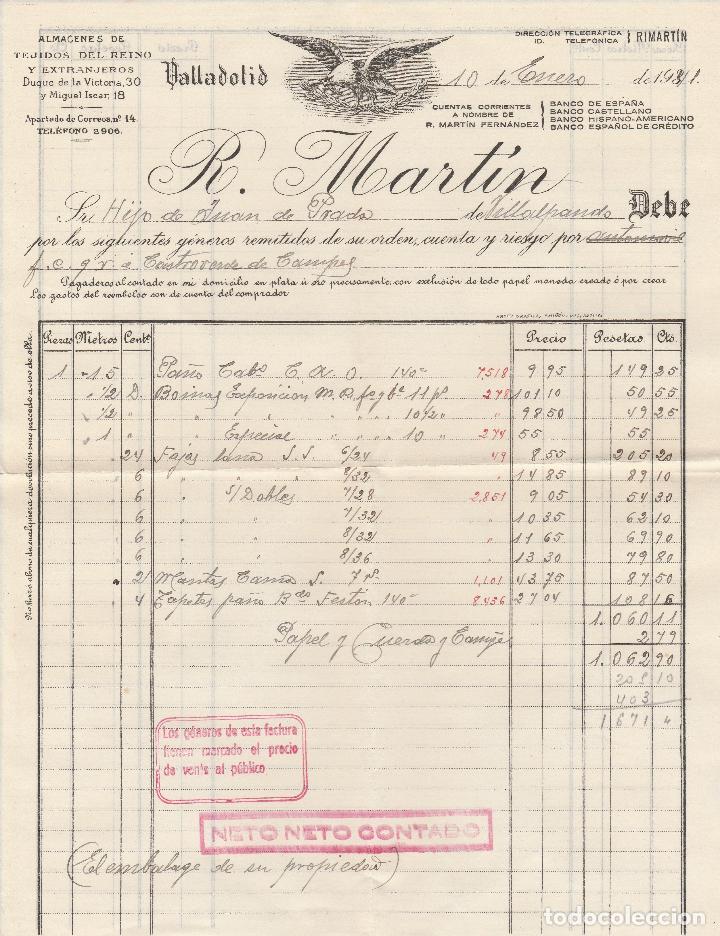 ALMACENES DE
TEJIDOS DEL REINO
Y EXTRANJEROS
Duque de la Victoria, 30
y Miguel Iscar, 18
Apartado de Correos, nº 14
TELÉFONO 2906.
DIRECCIÓN TELEGRÁFICA
ID. TELEFÓNICA
RIMARTÍN
Valladolid 10 de Enero de 1941.
CUENTAS CORRIENTES
A NOMBRE DE
R. MARTÍN FERNÁNDEZ
BANCO DE ESPAÑA
BANCO CASTELLANO
BANCO HISPANO-AMERICANO
BANCO ESPAÑOL DE CRÉDITO
R. Martín
Sr. Hijo de Juan de Prada de Villalpando Debe
por los siguientes géneros remitidos de su orden, cuenta y riesgo por
f.c. g.v. a Castroverde de Campos
Pagaderos al contado en mi domicilio en plata ú oro precisamente, con exclusión de todo papel moneda creado ó por crear
Los gastos del reembolso son de cuenta del comprador
Piezas Metros Centº Precio Pesetas Cts.
1 15 Paño Cabº C. A. O. 140- 7518 9 95 149 25
1/2 D. Boinas Exposicion 11 pº 278 101 10 50 55
1/2 " " " 10 1/2 " " 98 50 49 25
1 " Especial " " 10 " 274 55 55
24 Fajas lana S. S. 6/24 49 8 55 205 20
6 " " " 8/32 " 14 85 89 10
6 " S/ Dobles 7/28 2,851 9 05 54 30
6 " " 7/32 " 10 35 62 10
6 " " 8/32 " 11 65 69 90
6 " " 8/36 " 13 30 79 80
2 Mantas Cama S. 7 1,101 43 75 87 50
4 Tapetes paño Bdo Festón 140- 8,436 27 04 108 16
1.060 11
Papel y Cuerda y 2 79
1.062 90
403
1 671 4
No hará abono de cualquiera devolución si no precede aviso de ella.
Los géneros de esta factura
tienen marcado el precio
de venta al público
NETO NETO CONTADO
(El embalage de su propiedad)
todocoleccion